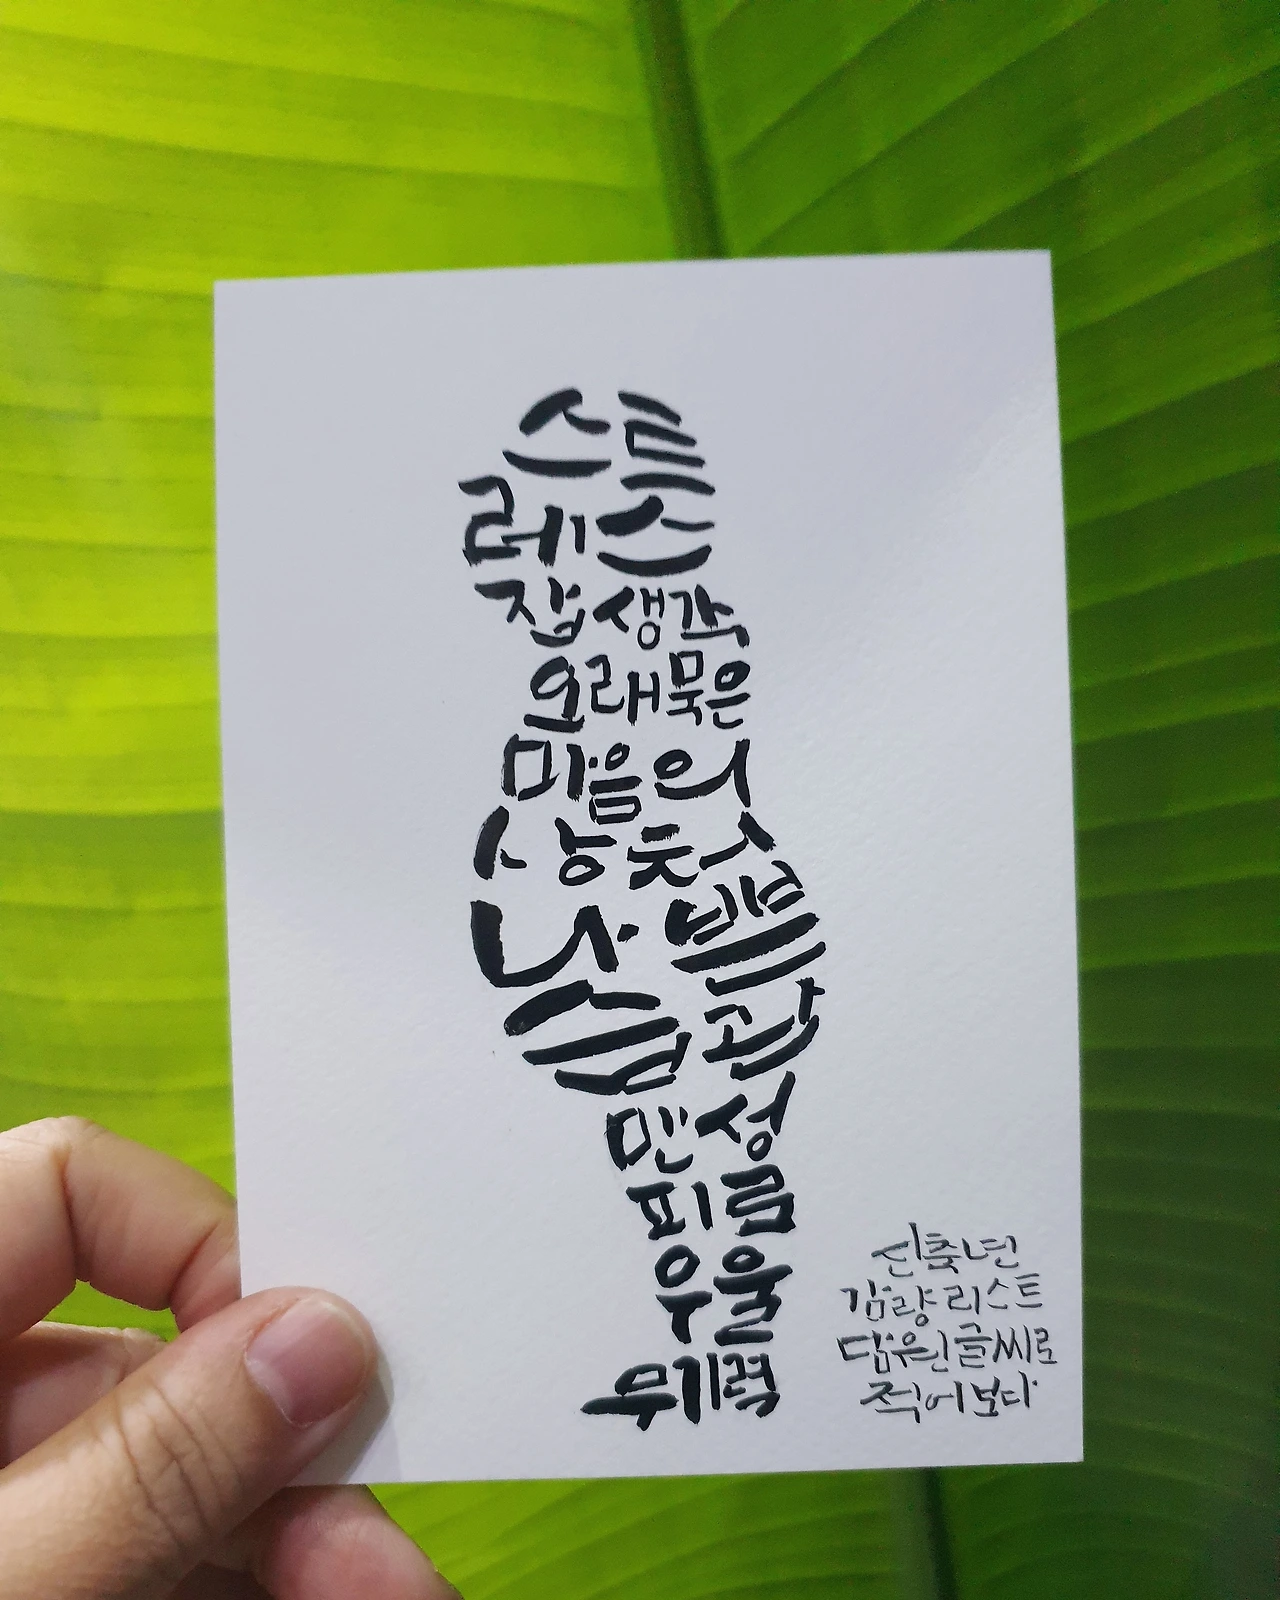 스트
레스
잡생각
오래묵은
마음의
상처
나쁜
습관
만성
피로
우울
무기력
신축년
감량리스트
담원글씨로
적어보다